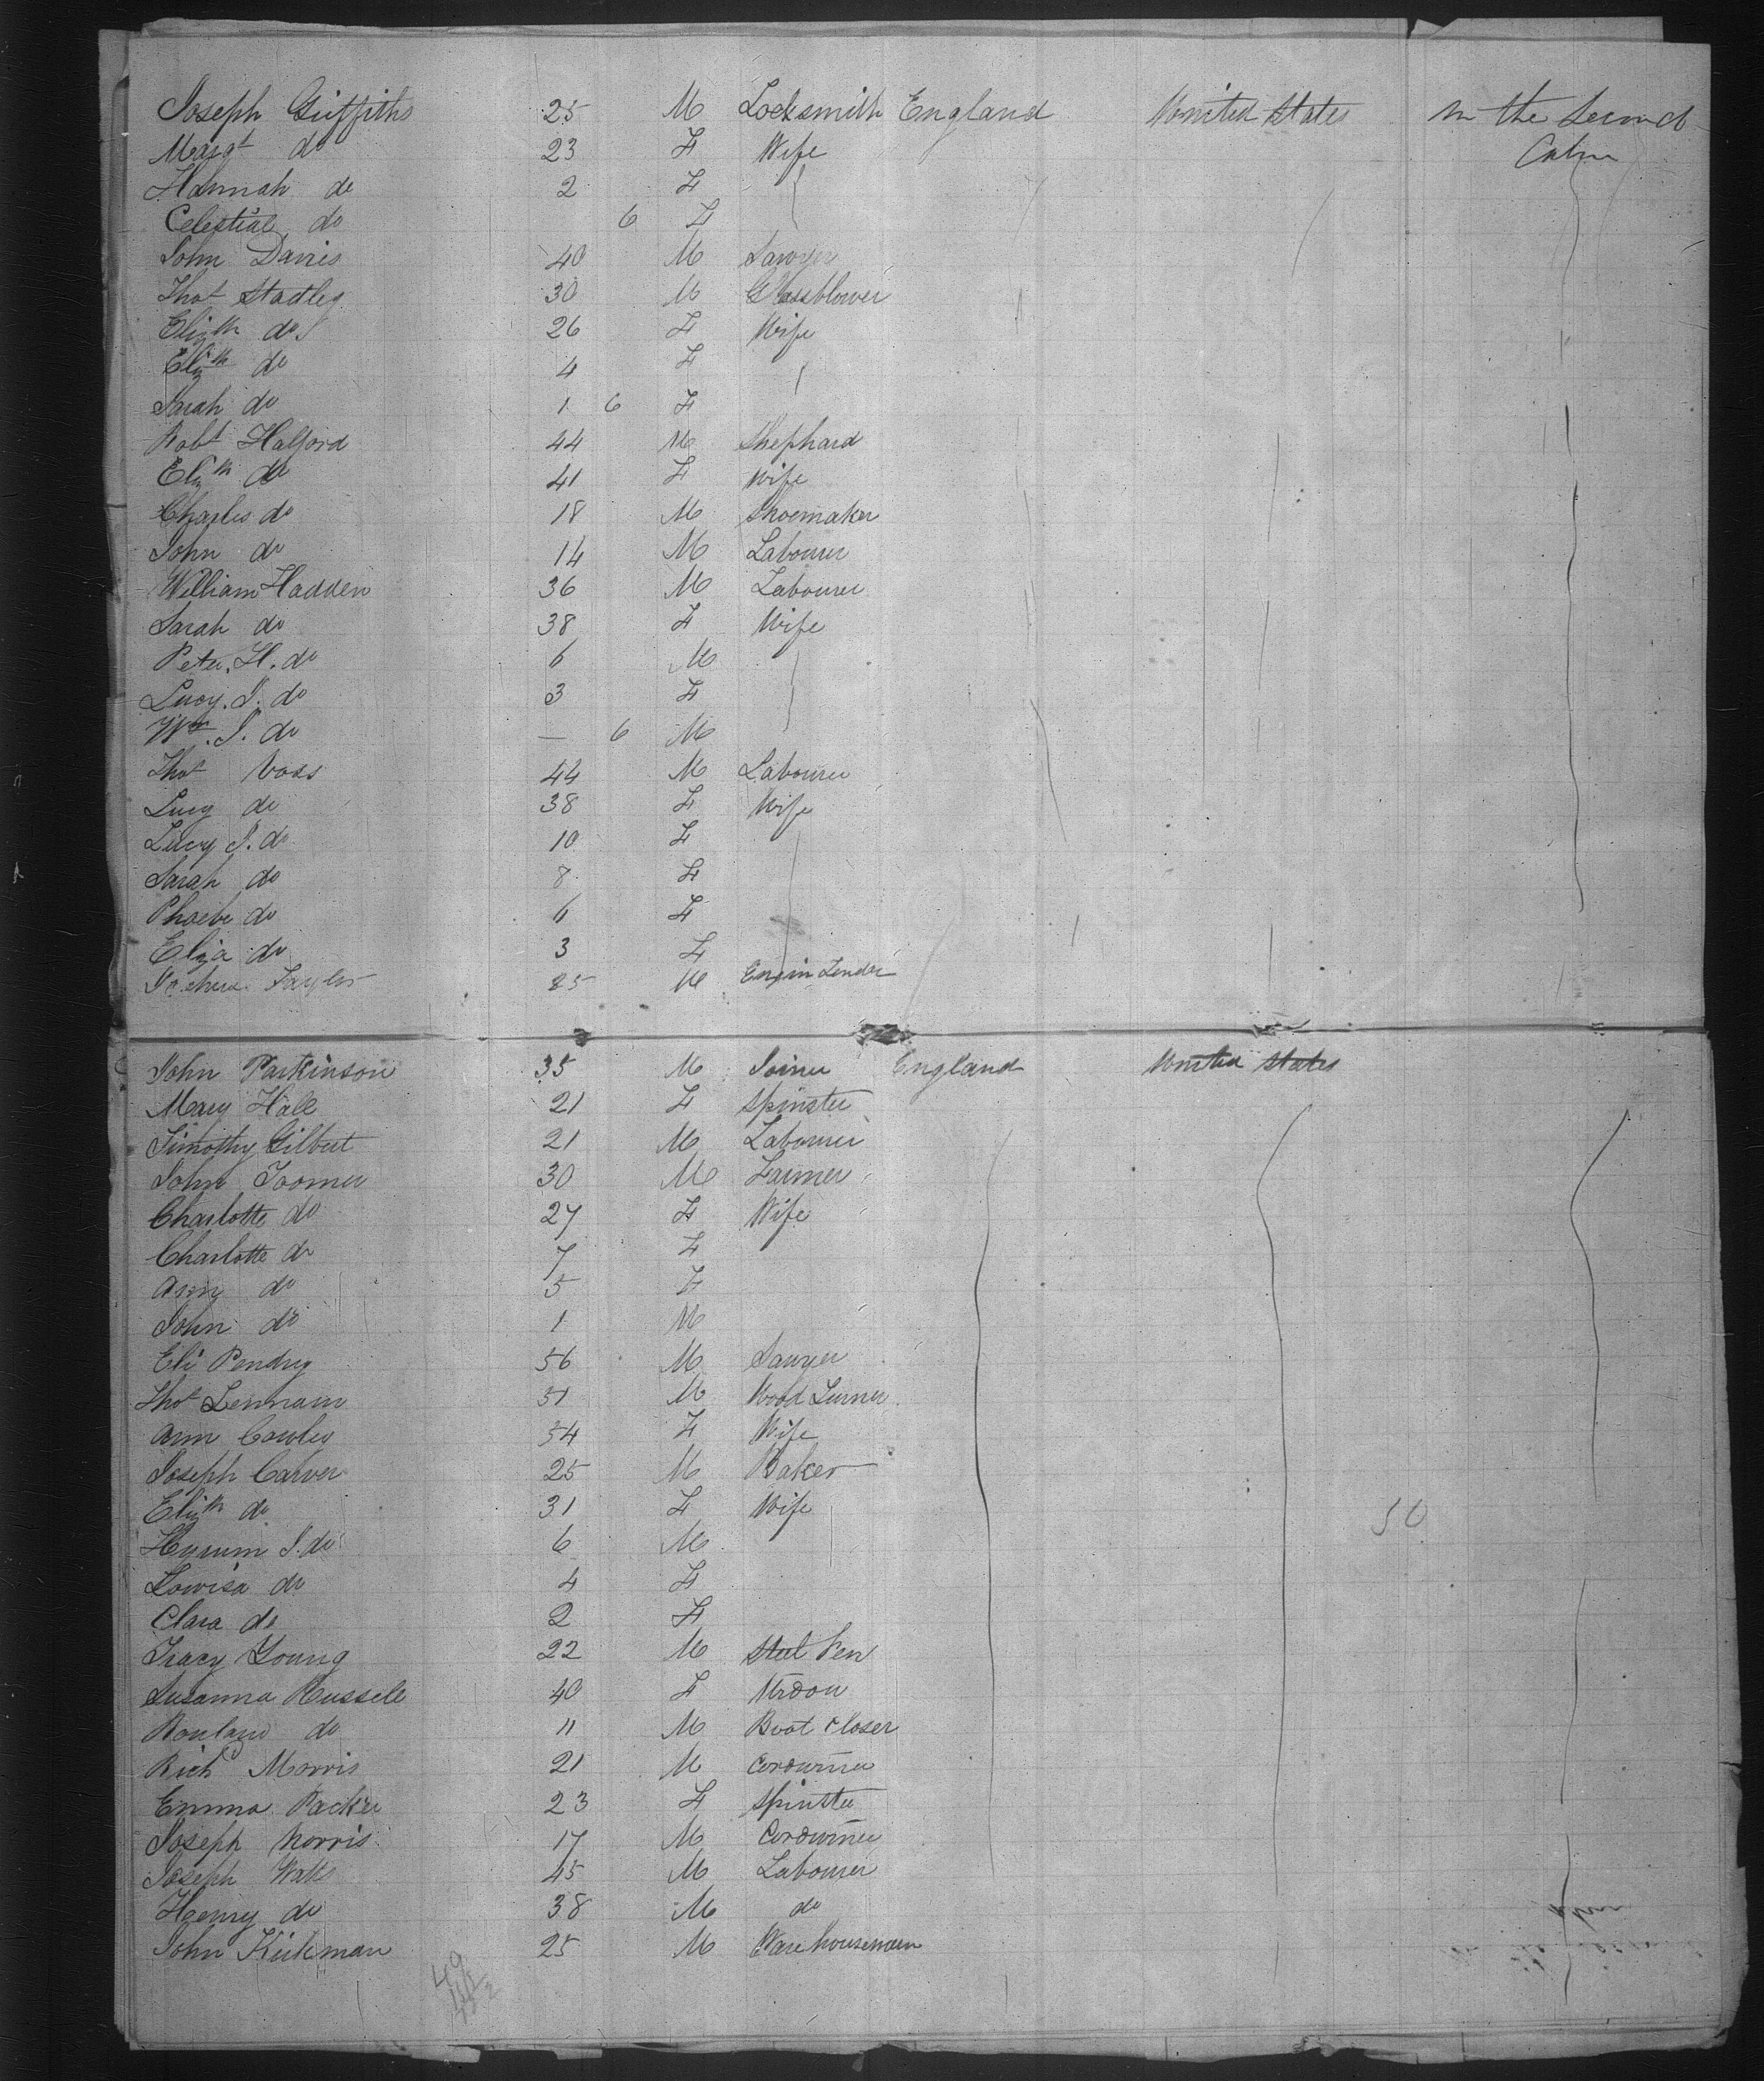 Joseph Griffiths 25 M Locksmith England United States In the Second
Margt do 23 F Wife Cabin
Hannah do 2 F
Celestial do 6 F
John Davis 40 M Sawyer
Thos Stadley 30 M Glassblower
Elizth do 26 F Wife
Elizth do 4 F
Sarah do 1 6 F
Robt Halford 44 M Shephard
Elizth do 41 F Wife
Charles do 18 M Shoemaker
John do 14 M Labourer
William Hadden 36 M Labourer
Sarah do 38 F Wife
Peter. H. do 6 M
Lucy. J. do 3 F
Wm. J. do — 6 M
Thos Voss 44 M Labourer
Lucy do 38 F Wife
Lucy J. do 10 F
Sarah do 8 F
Phoebe do 6 F
Eliza do 3 F
Taylor 25 M Engin Tender
John Parkinson 35 M Joiner England United States
Mary Hall 21 F Spinster
Timothy Gilbert 21 M Labourer
John Toomer 30 M Farmer
Charlotte do 27 F Wife
Charlotte do 7 F
Ann do 5 F
John do 1 M
Eli Pendry 56 M Sawyer
Thos Lennam 51 M Wood Turner
Ann Cowley 54 F Wife
Joseph Carver 25 M Baker
Elizth do 31 F Wife
Hyrum J. do 6 M
Lowisa do 4 F
Clara do 2 F
Tracy Young 22 M Steel Pen
Susanna Russell 40 F Widow
Rowland do 11 M Boot Closer
Richd Morris 21 M Cordwiner
Emma Packer 23 F Spinster
Joseph Norris 17 M Cordwiner
Joseph Watts 45 M Labourer
Henry do 38 M do
John Kirkman 25 M Warehouseman
49